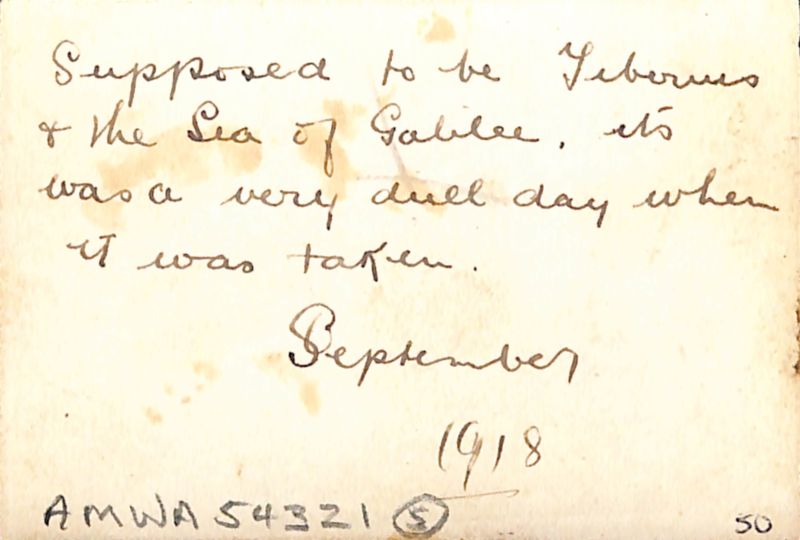 Supposed to be Tiberius
& the Sea of Galilee, its
was a very dull day when
it was taken.
September
1918
AMWA 54321 (5)
50